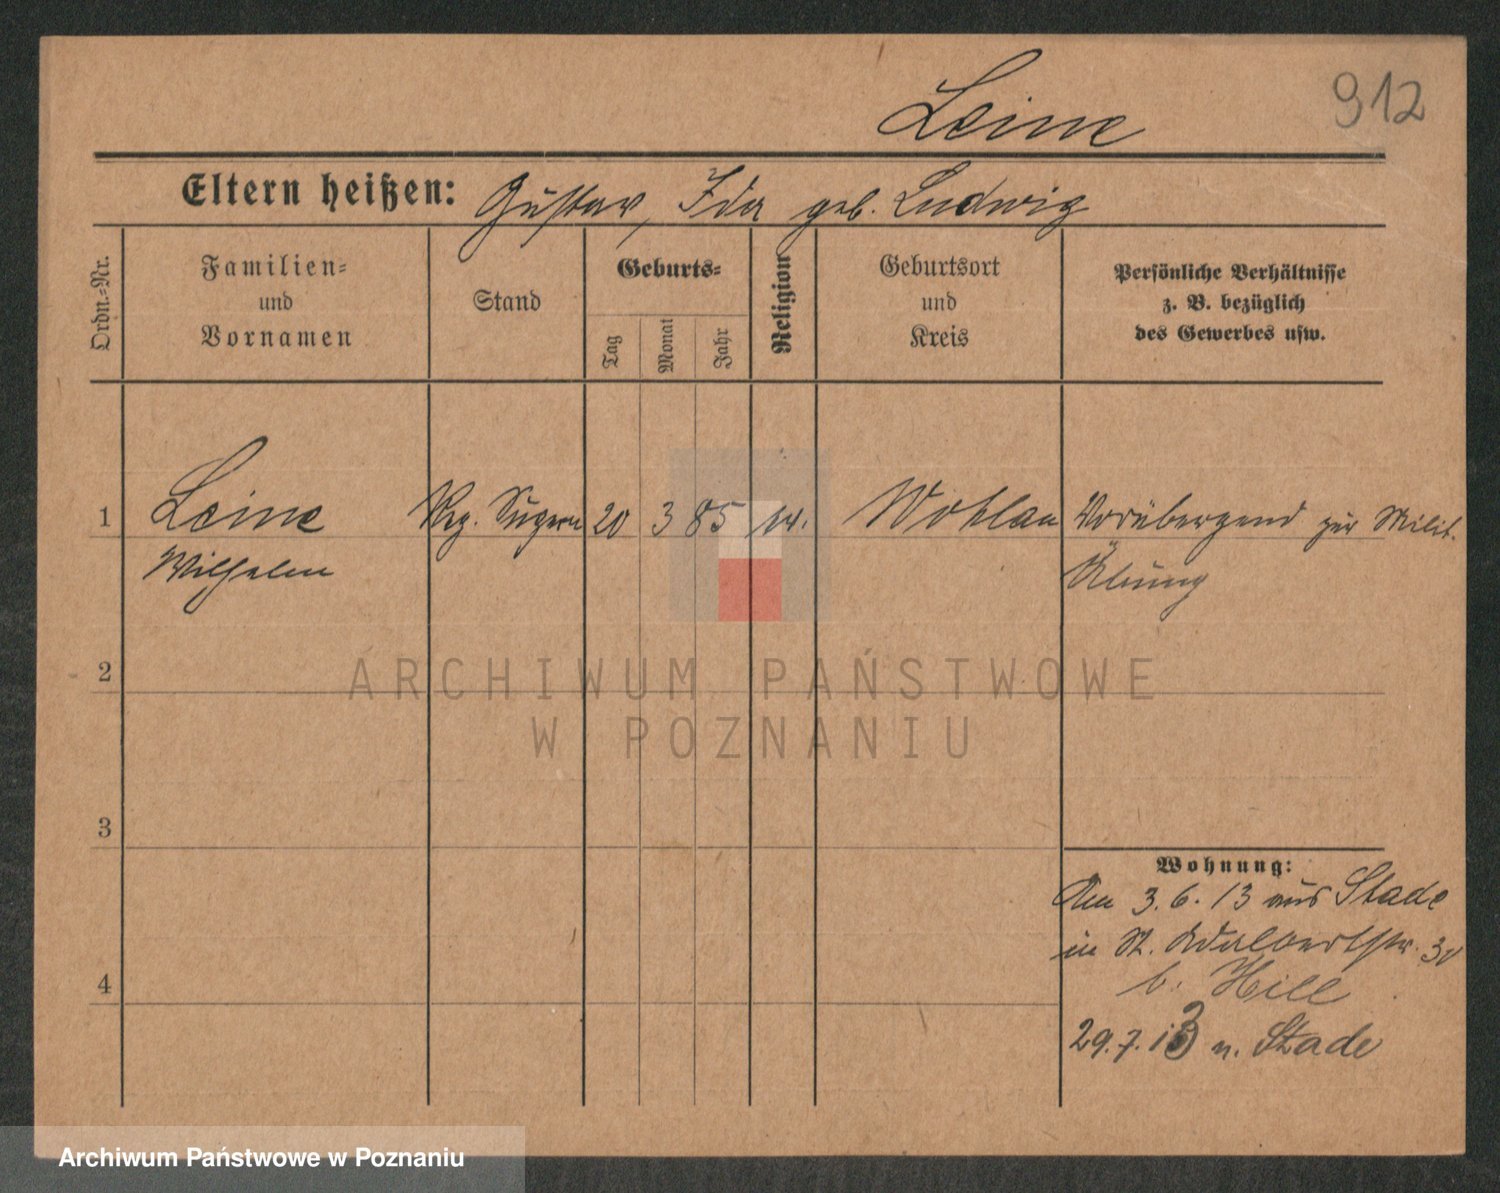 Leine
912
Eltern heißen: Gustav, Ida geb. Ludwig
Ordn.-Nr.
Familien-
und
Vornamen
Stand
Geburts-
Tag
Monat
Jahr
Religion
Geburtsort
und
Kreis
Persönliche Verhältnisse
z. B. bezüglich
des Gewerbes usw.
1
Leine
Wilhelm
Reg.
20
3
85
ev.
Wohlau
Vorübergend zur Milit.
Übung
2
3
4
Wohnung:
Am 3.6.13 aus Stade
in St. Adalbertstr. 30
b. Hill
29.7.13 n. Stade
ARCHIWUM PAŃSTWOWE
W POZNANIU
Archiwum Państwowe w Poznaniu